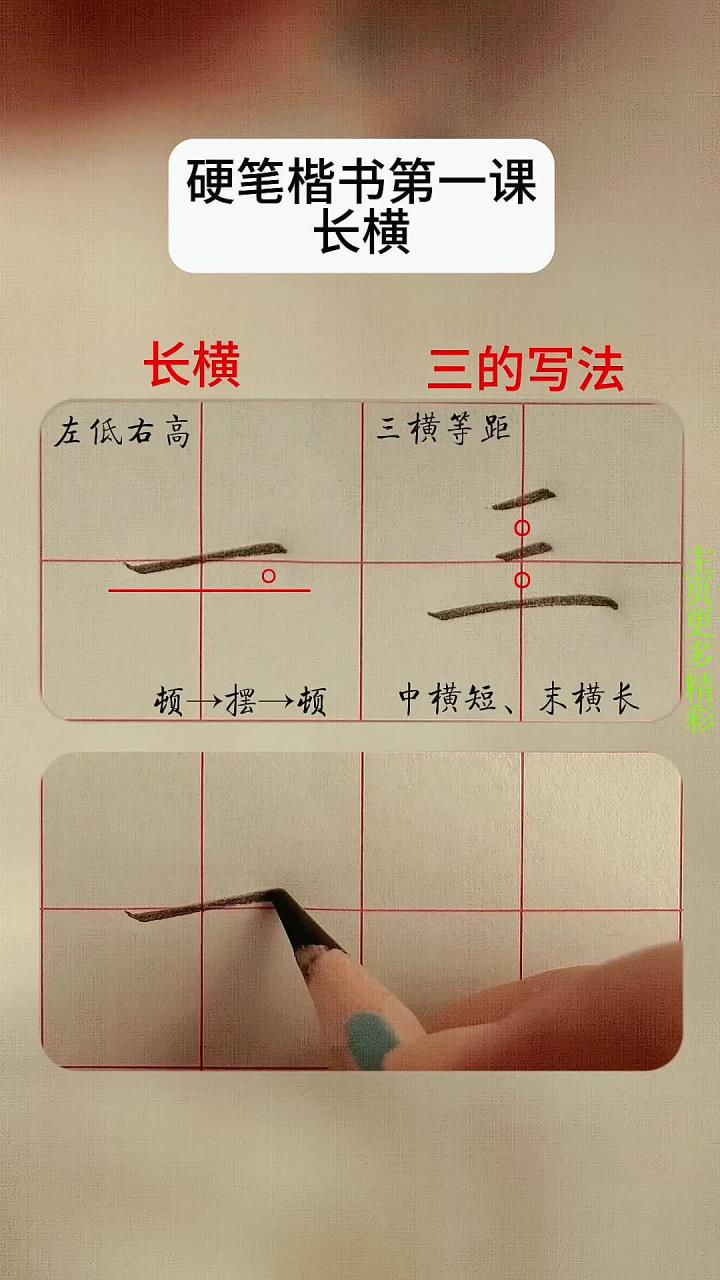 硬笔楷书第一课
长横
长横
三的写法
左低右高
三横等距
一
三
顿→摆→顿
中横短、末横长
主页更多精彩